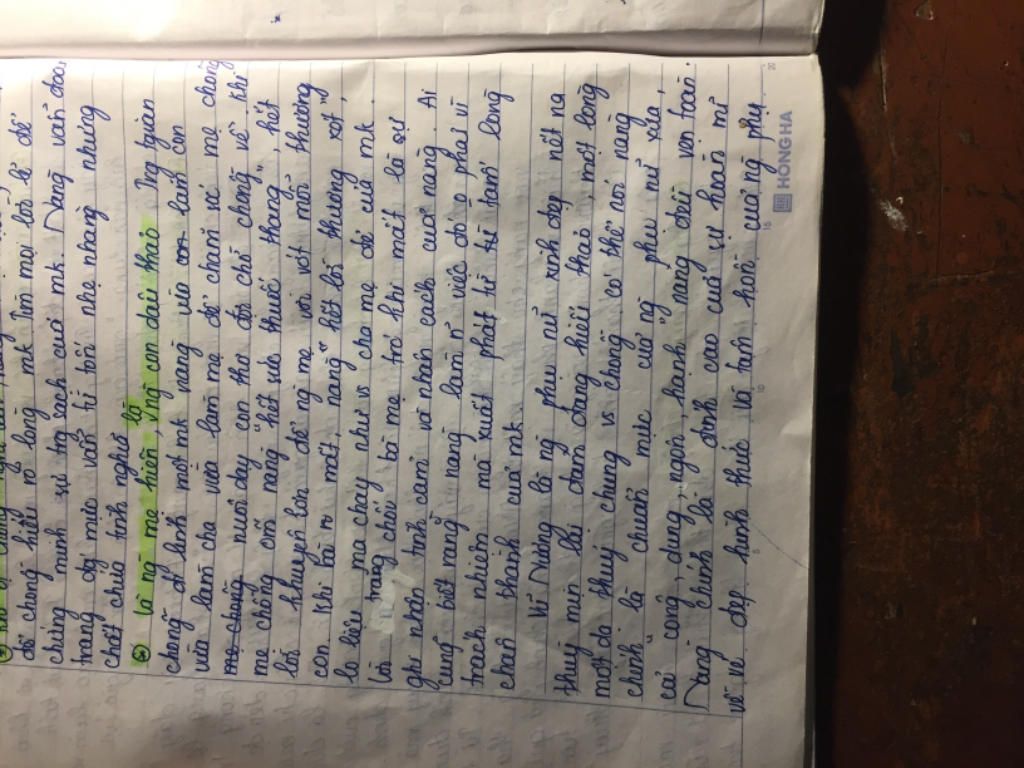 để chồng hiểu rõ lòng mk tìm mọi lời lẽ để
chứng minh sự trg sạch của mk. Nàng vẫn đoan
trang đg mực vẫn từ tốn nhẹ nhàng nhưng
chất chứa tình nghĩa
là ng mẹ hiền, vng con dâu thảo. Trg tgian
chồng đi lính một mk nàng vừa con làm con
vừa làm cha vừa làm mẹ để chăm sóc mẹ chồng
mẹ chồng nuôi dạy con thơ đợi chờ chồng về. Khi
mẹ chồng ốm nàng "hết sức thuốc thang", hết
lời khuyên lơn để ng mẹ vơi bớt nỗi thương
con. Khi bà ra mất, nàng "hết lời thương xót",
lo liệu ma chay như vs cha mẹ đẻ của mk.
Lời trăng chối bà mẹ trc khi mất là sự
ghi nhận tình cảm và nhân cách của nàng. Ai
cũng biết rằng nàng làm n việc đó o phải vì
trách nhiệm mà xuất phát từ từ tam lòng
chân thành của mk
Vũ Nương là ng phụ nữ xinh đẹp nết na
thuỳ mị lại đảm đang hiếu thảo, một lòng
một dạ thuỷ chung vs chồng có thể nói nàng
chính là chuẩn mực của ng phụ nữ xưa,
cả công, dung, ngôn, hạnh nàng đều vẹn toàn.
Nàng chính là đỉnh cao của sự hoàn mĩ
về vẻ đẹp hình thức và tâm hồn của ng phụ
HONG HA
5
10
15
20